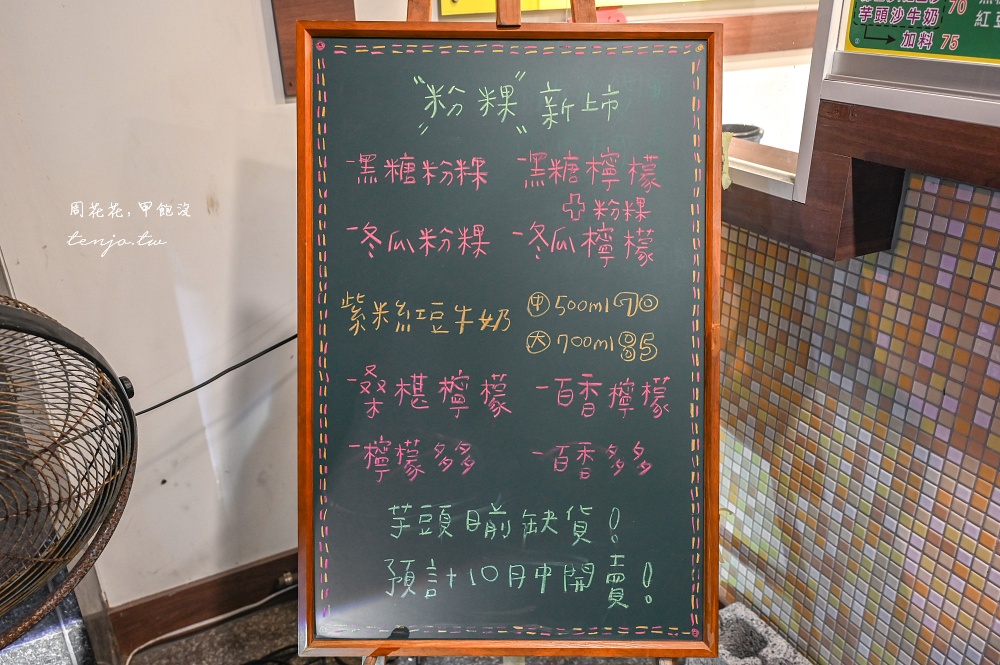 芋頭沙牛奶 70
加料 75
紅豆
"粉粿"新上市
-黑糖粉粿 -黑糖檸檬
+粉粿
-冬瓜粉粿 -冬瓜檸檬
紫米紅豆牛奶 中 500ml 70
大 700ml 85
-桑椹檸檬 -百香檸檬
-檸檬多多 -百香多多
芋頭目前缺貨!
預計10月中開賣!
周花花,甲飽沒
tenjo.tw